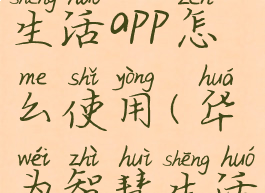 shēng huó zěn
生活app怎
me shǐ yòng huá
么使用(华
wéi zhì huì shēng huó
为智慧生活